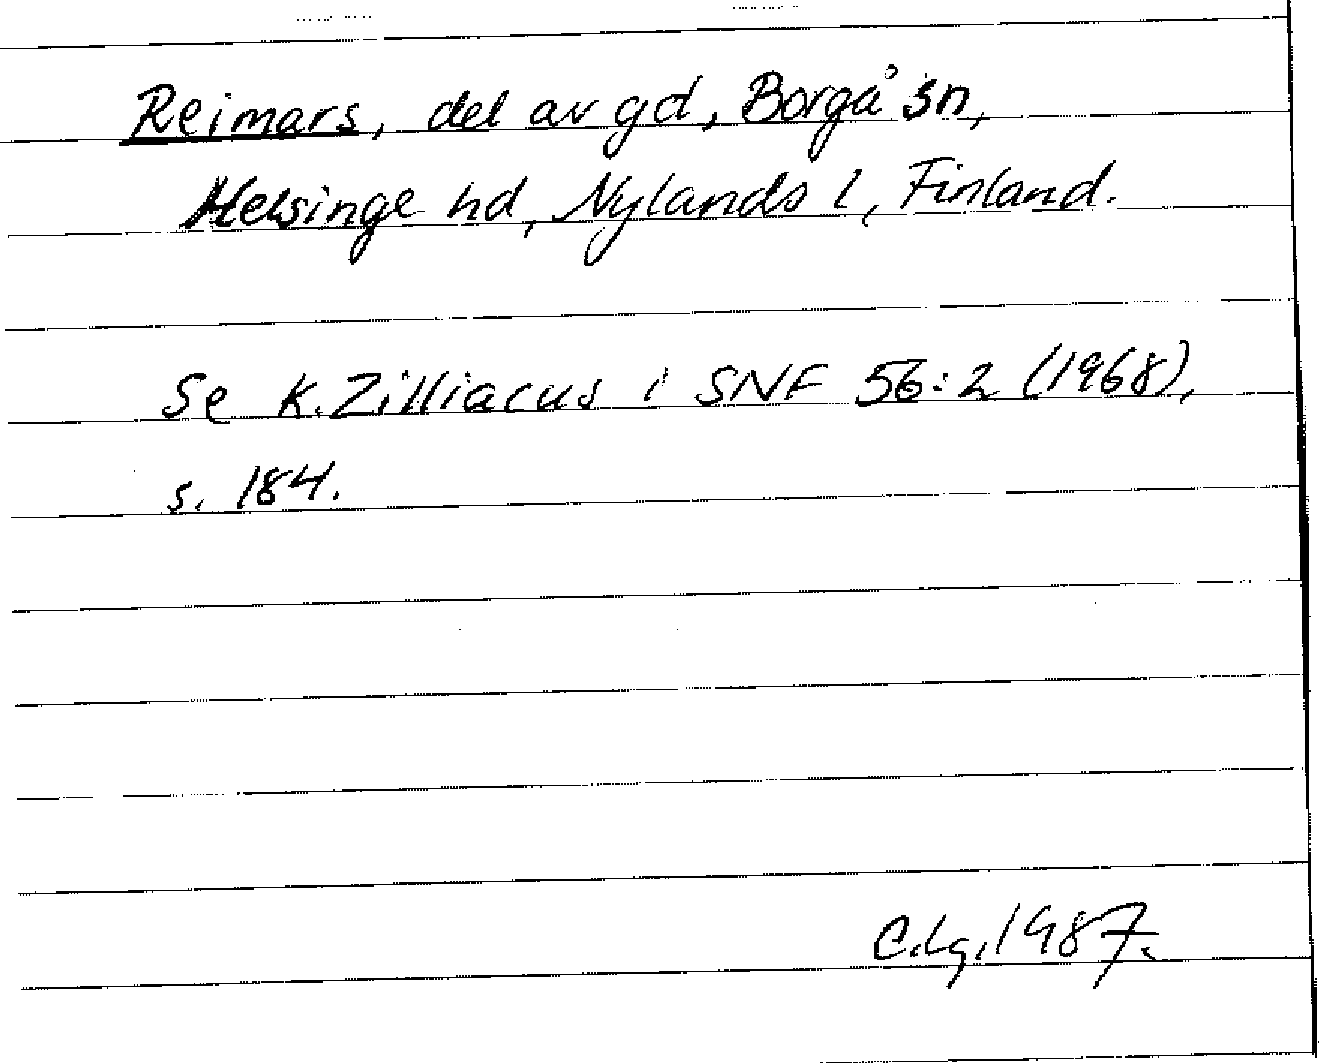 Reimars, del av gd, Borgå sn,
Helsinge hd, Nylands l, Finland.
Se K. Zilliacus i SNF 56:2 (1968),
s. 184.
C.Lg. 1987.